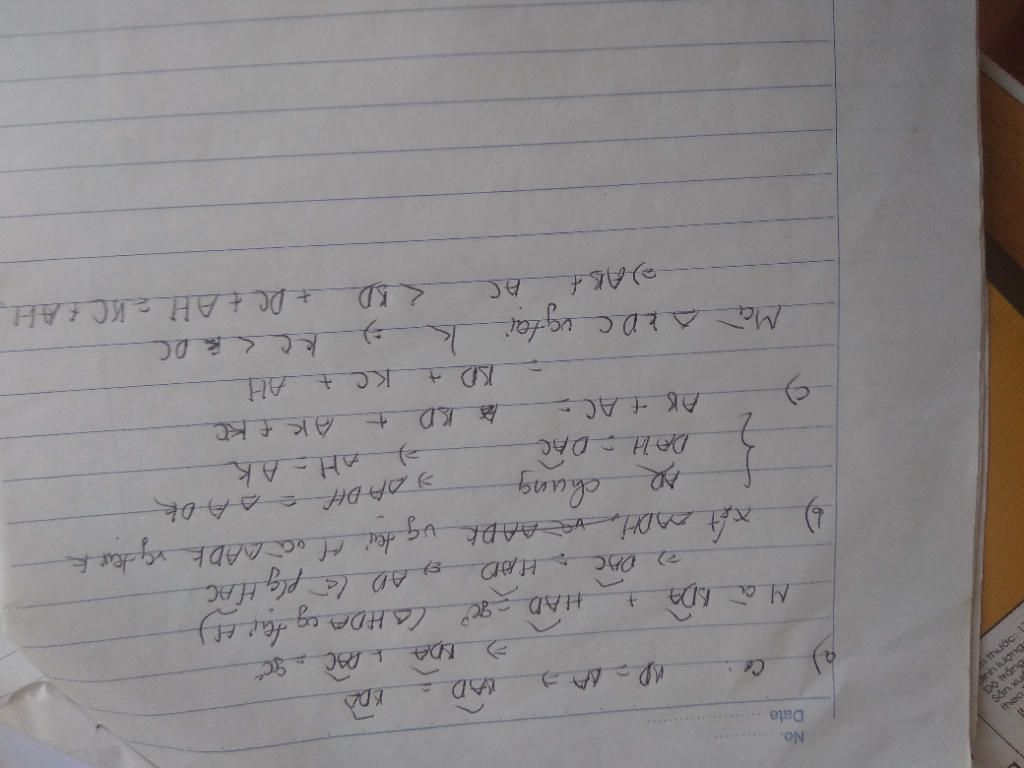 No. ............
Date ............
a) Có: BD = BA ⇒ BAD = BDA
⇒ BDA + DAC = 90°
Mà BDA + HAD = 90° (ΔHDA vg tại H)
⇒ DAC = HAD ⇒ AD là pg HAC
b) Xét ΔADH vg tại H và ΔADK vg tại K
AD chung ⇒ ΔADH = ΔADK
DAH = DAC ⇒ AH = AK
c) AB + AC = BD + AK + KC
= BD + KC + AH
Mà ΔKDC vg tại K ⇒ KC < DC
⇒ AB + AC < BD + DC + AH = BC + AH